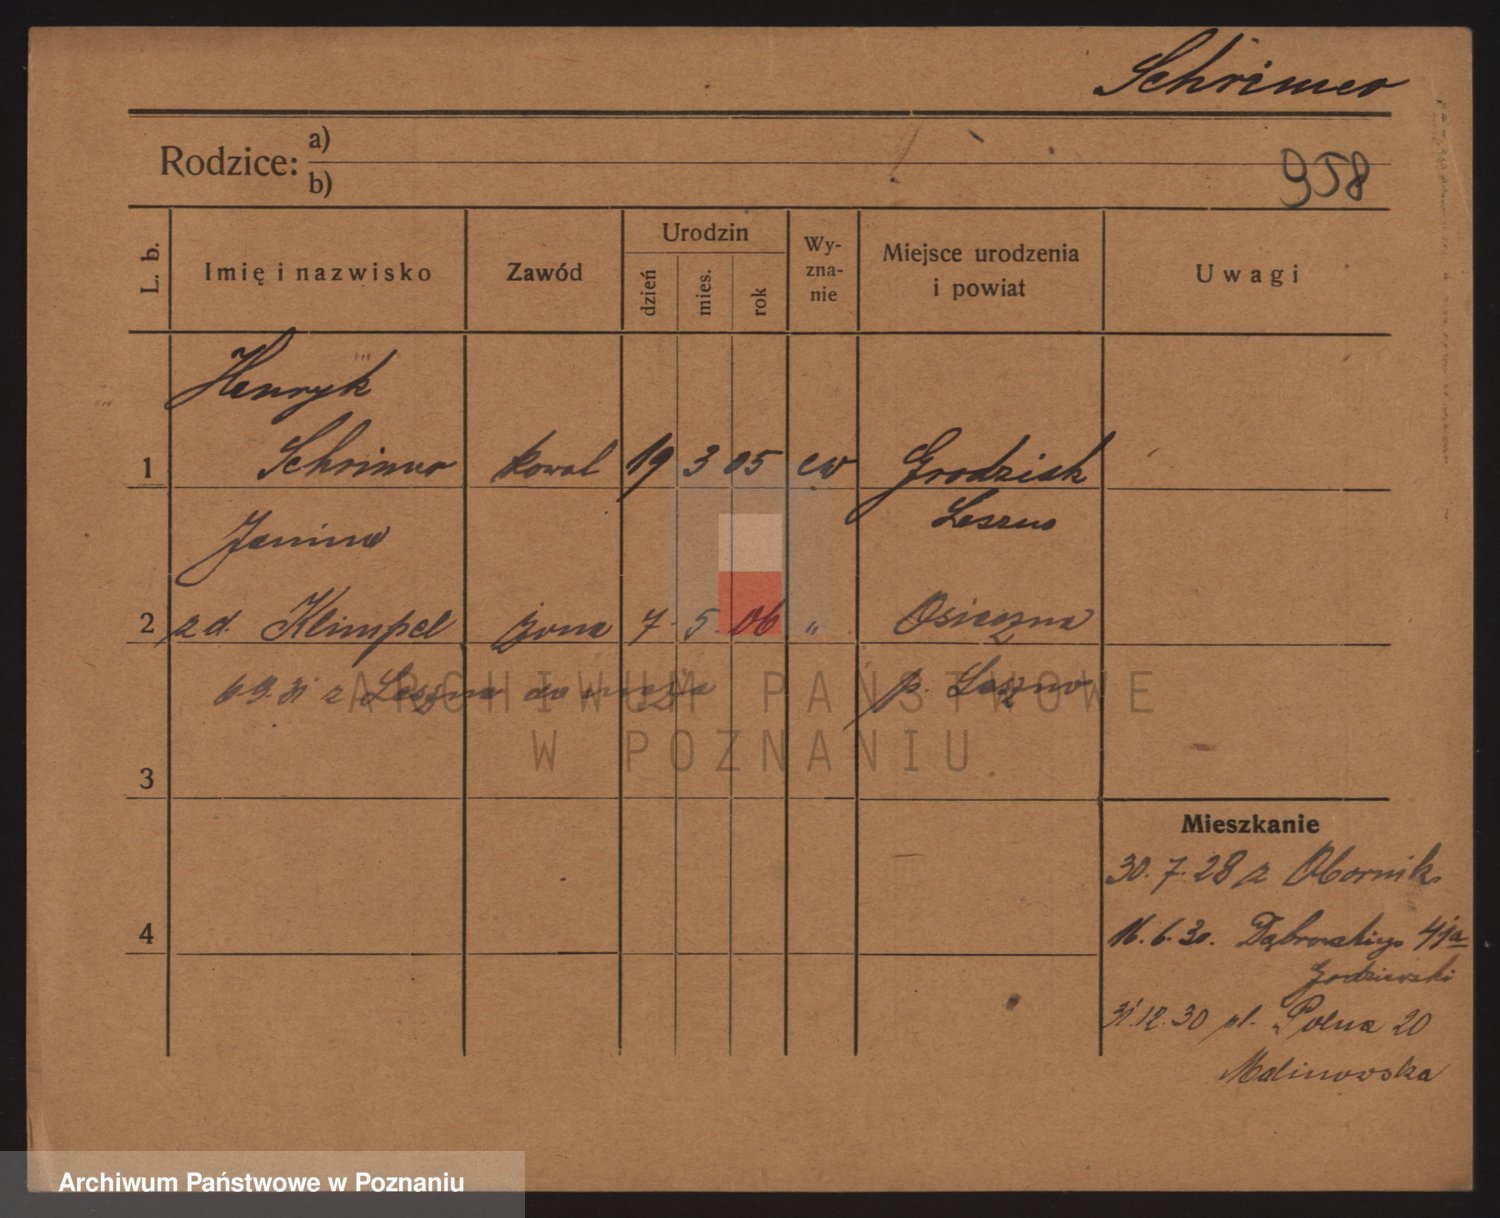 Schrimer
Rodzice: a)
b)
958
L. b. Imię i nazwisko Zawód Urodzin dzień mies. rok Wy-zna-nie Miejsce urodzenia i powiat Uwagi
Henryk
1 Schrimer kowal 19 3 05 ew Grodzisk
Leszno
Janina
2 z d. Klimpel żona 7. 5. 06 " Osieczna
6 9. 31 z Leszna do męża p. Leszno
3
Mieszkanie
30. 7. 28 z Obornik
4
16. 6. 30. Dąbrowskiego 41a
31. 12. 30 pl. Polna 20
Malinowska
ARCHIWUM PAŃSTWOWE
W POZNANIU
Archiwum Państwowe w Poznaniu